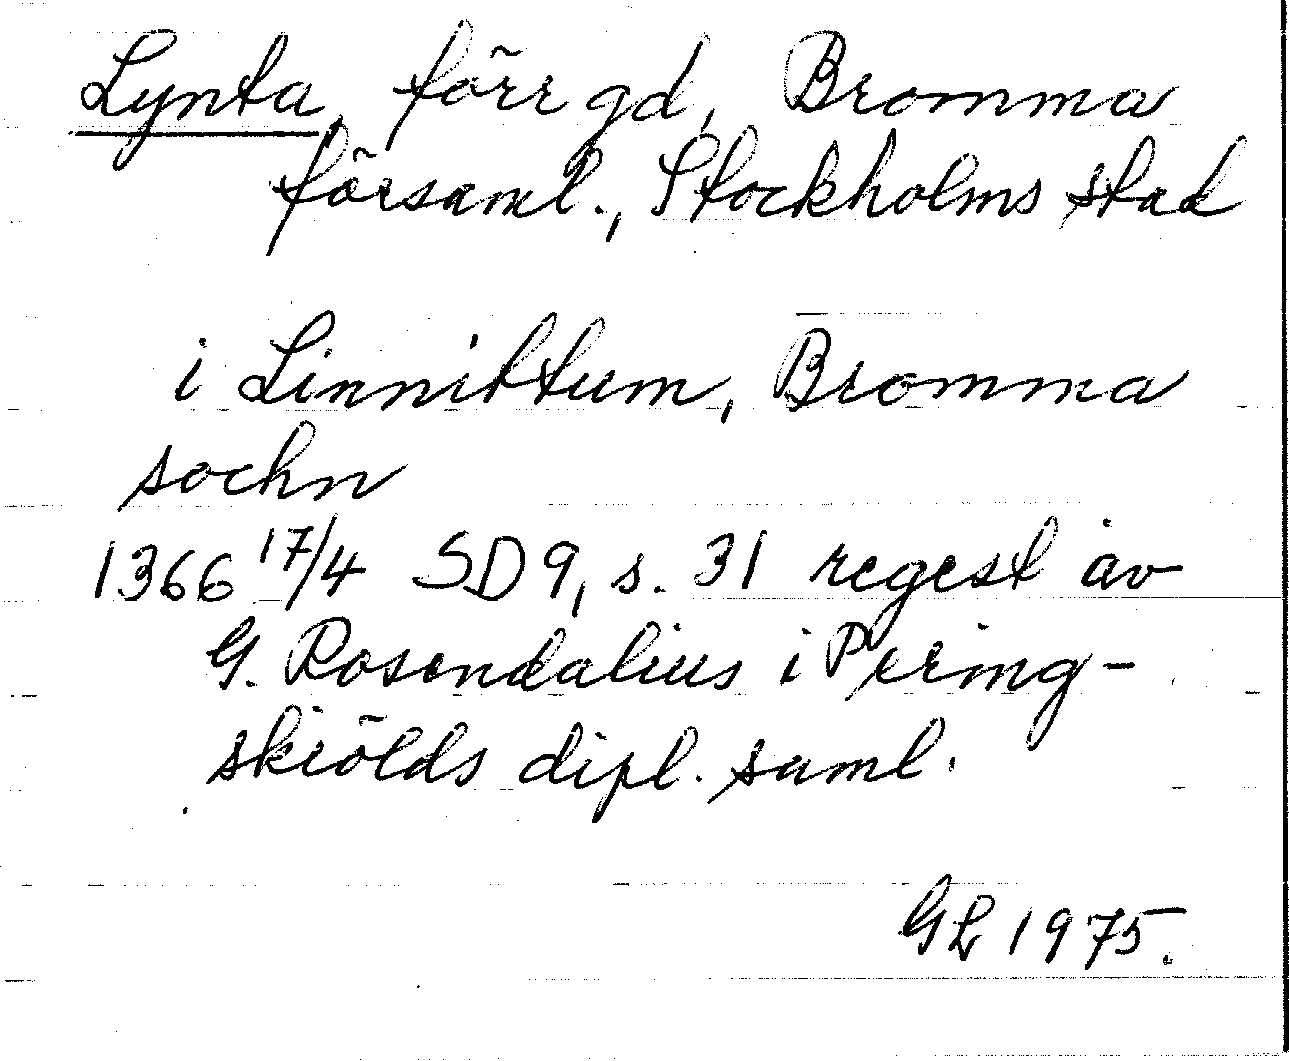 Lynta, förr gd, Bromma
församl., Stockholms stad
i Linnittum, Bromma
sochn
1366 17/4 SD 9, s. 31 regest av
G. Rosendalius i Pering-
skiölds dipl. saml.
GL 1975.